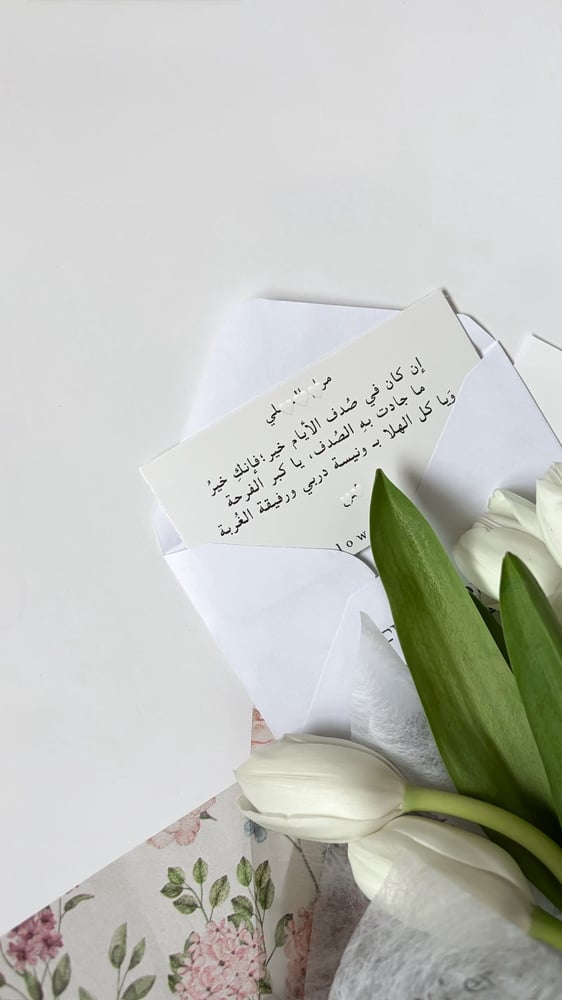 إن كان في صُدف الأيام خير ؛فإنكِ خيرُ
ما جادت بهِ الصُدف، يا كبر الفرحة
وَيا كل الهلا بـ ونيسة دربي ورفيقة الغُربة